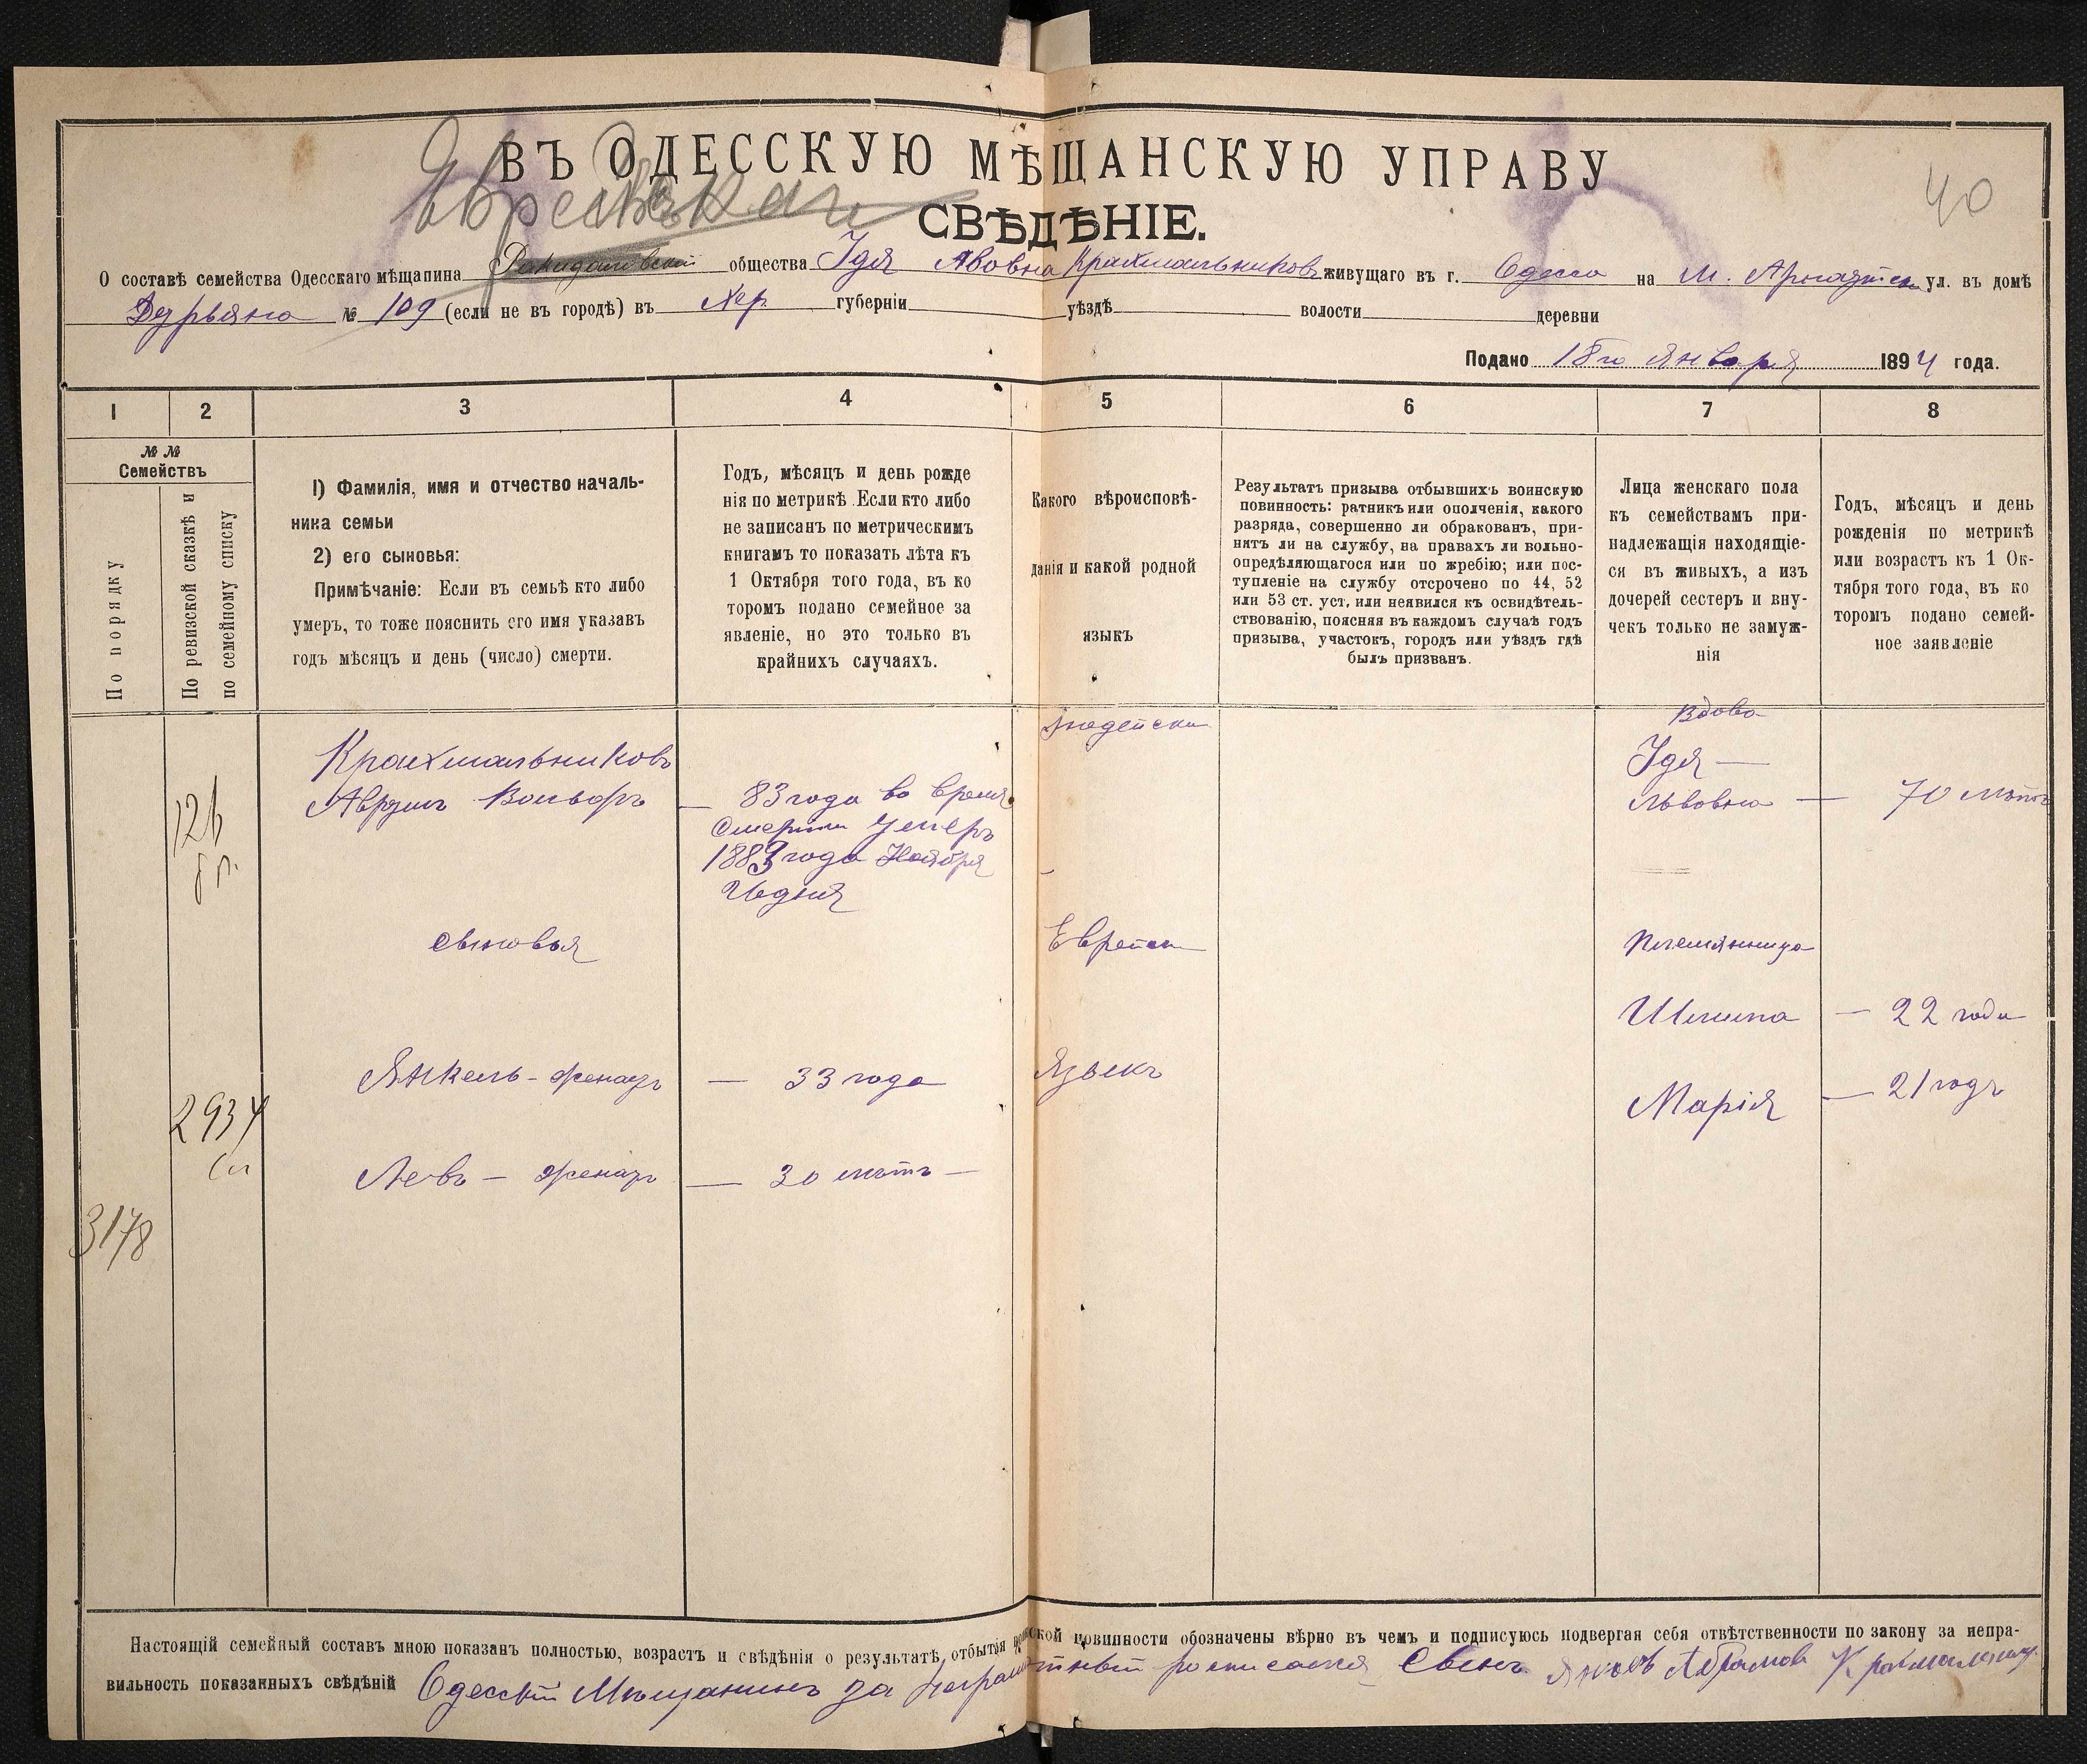 ВЪ ОДЕССКУЮ МѢЩАНСКУЮ УПРАВУ
Еврейская
40
СВѢДѢНІЕ.
О составѣ семейства Одесскаго мѣщанина общества Идя Авовна Крахмальниковъ живущаго въ г. Одесса на М. Арнаутск ул. въ домѣ
Дурьяна № 109 (если не въ городѣ) въ Хер. губерніи уѣздѣ волости деревни
Подано 18го Января 1894 года.
1 2 3 4 5 6 7 8
№ №
Семействъ
По порядку
По ревизской сказкѣ и
по семейному списку
1) Фамилія, имя и отчество началь-
ника семьи
2) его сыновья:
Примѣчаніе: Если въ семьѣ кто либо
умеръ, то тоже пояснить его имя указавъ
годъ мѣсяцъ и день (число) смерти.
Годъ, мѣсяцъ и день рожде
нія по метрикѣ. Если кто либо
не записанъ по метрическимъ
книгамъ то показать лѣта къ
1 Октября того года, въ ко
торомъ подано семейное за
явленіе, но это только въ
крайнихъ случаяхъ.
Какого вѣроисповѣ-
данія и какой родной
языкъ
Результатъ призыва отбывшихъ воинскую
повинность: ратникъ или ополченія, какого
разряда, совершенно ли обракованъ, при-
нятъ ли на службу, на правахъ ли вольно-
опредѣляющагося или по жребію; или пос-
тупленіе на службу отсрочено по 44, 52
или 53 ст. уст. или неявился къ освидѣтель-
ствованію, поясняя въ каждомъ случаѣ годъ
призыва, участокъ, городъ или уѣздъ гдѣ
былъ призванъ.
Лица женскаго пола
къ семействамъ при-
надлежащія находящіе-
ся въ живыхъ, а изъ
дочерей сестеръ и вну-
чекъ только не замуж-
нія
Годъ, мѣсяцъ и день
рожденія по метрикѣ
или возрастъ къ 1 Ок-
тября того года, въ ко
торомъ подано семей-
ное заявленіе
Іюдейски
Вдова
Крахмальниковъ
Идя —
Аврумъ Вольфъ — 83 года во время
Львовна — 70 лѣтъ
смерти Умеръ
1883 года Ноября
дня
126
сыновья
Еврейск
Племянница
Шлима — 22 года
Янкель - — 33 года
Языкъ
Марія — 21 годъ
2934
Левъ — — 30 лѣтъ —
3178
Настоящій семейный составъ мною показанъ полностью, возрастъ и свѣдѣнія о результатѣ отбытія воинской повинности обозначены вѣрно въ чемъ и подписуюсь подвергая себя отвѣтственности по закону за непра-
вильность показанныхъ свѣдѣній Одесскій Мѣщанинъ за неграмотный росписался Сынъ Яковъ Абрамовъ